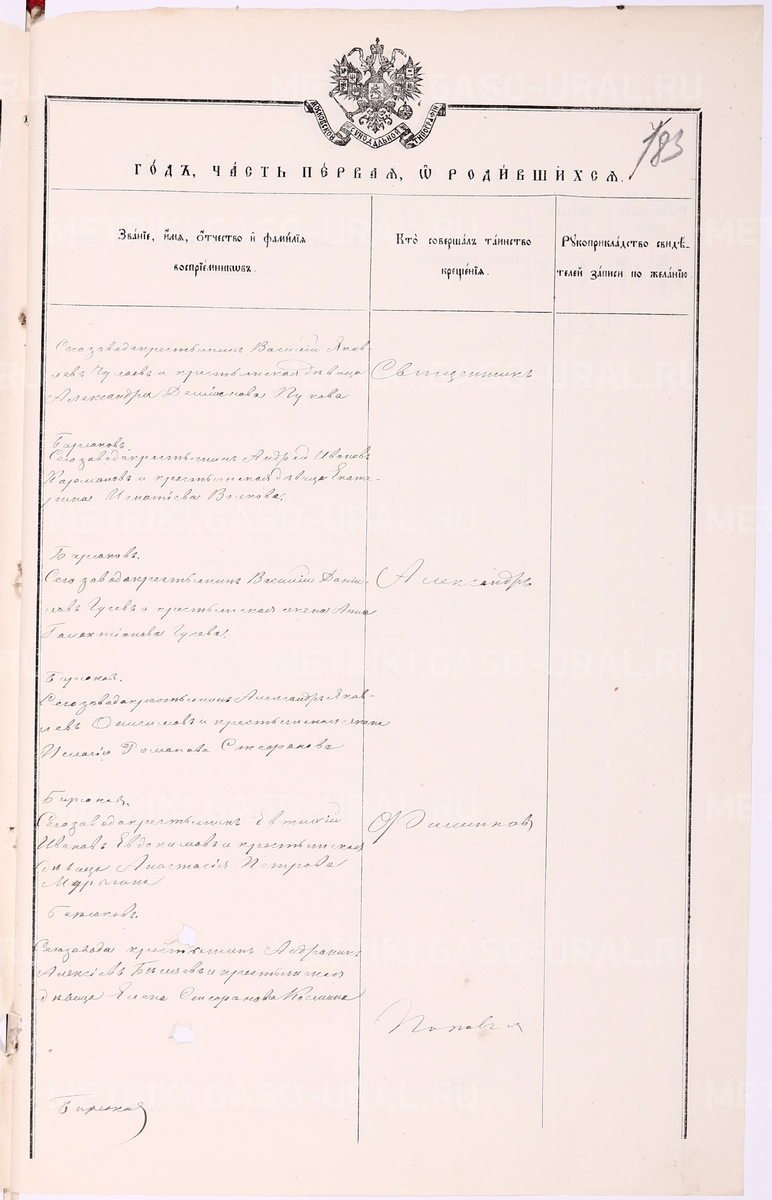 МОСКОВСКОЙ СѴНОДАЛЬНОЙ ТИПОГРАФІИ
183
ГОДЪ, ЧАСТЬ ПЕРВАЯ, Ѡ РОДИВШИХСЯ.
Званіе, имя, отчество и фамилія воспріемниковъ.
Кто совершалъ таинство крещенія.
Рукоприкладство свидѣ-
телей записи по желанію.
Сего завода крестьянинъ Василій Яков-
левъ и крестьянская дѣвица
Александра Пукова
Священникъ
Бирюковъ.
Сего завода крестьянинъ Андрей Ивановъ
и крестьянская дѣвица Екате-
рина Игнатіева Волкова.
Бирюковъ.
Сего завода крестьянинъ Василій Дани-
ловъ Гусевъ и крестьянская жена Анна
Галактіонова Гусева.
Александръ
Бирюков.
Сего завода крестьянинъ Александръ Яков-
левъ Онисимовъ и крестьянская жена
Пелагія Романова Стефанова
Бирюков.
Сего завода крестьянинъ Евгиній
Ивановъ Евдокимовъ и крестьянская
дѣвица Анастасія Петрова
Филипповъ
Бирюковъ.
Сего завода крестьянинъ Андроникъ
Алексіевъ Бѣляевъ и крестьянская
дѣвица Елена Стефанова
Поповъ
Бирюков
METRIKI.GASO-URAL.RU